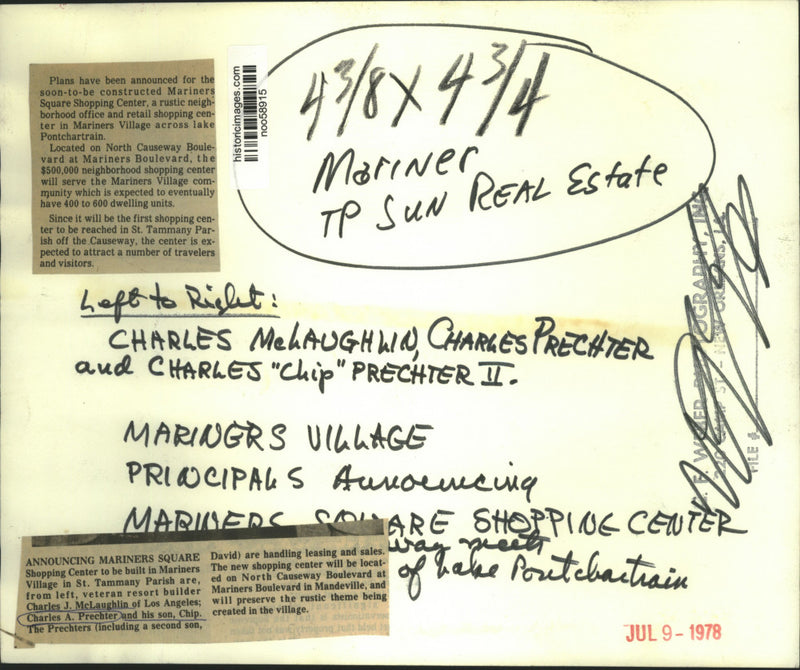 Plans have been announced for the
soon-to-be constructed Mariners
Square Shopping Center, a rustic neigh-
borhood office and retail shopping cen-
ter in Mariners Village across lake
Pontchartrain.
Located on North Causeway Boule-
vard at Mariners Boulevard, the
$500,000 neighborhood shopping center
will serve the Mariners Village com-
munity which is expected to eventually
have 400 to 600 dwelling units.
Since it will be the first shopping cen-
ter to be reached in St. Tammany Par-
ish off the Causeway, the center is ex-
pected to attract a number of travelers
and visitors.
historicimages.com
noo58915
4 3/8 X 4 3/4
Mariner
TP SUN REAL Estate
Left to Right:
CHARLES McLAUGHLIN, CHARLES PRECHTER
and CHARLES "Chip" PRECHTER II.
MARINERS VILLAGE
PRINCIPALS Announcing
MARINERS SQUARE SHOPPING CENTER
way meets
of Lake Pontchartrain
ANNOUNCING MARINERS SQUARE
Shopping Center to be built in Mariners
Village in St. Tammany Parish are,
from left, veteran resort builder
Charles J. McLaughlin of Los Angeles;
Charles A. Prechter and his son, Chip.
The Prechters (including a second son,
David) are handling leasing and sales.
The new shopping center will be locat-
ed on North Causeway Boulevard at
Mariners Boulevard in Mandeville, and
will preserve the rustic theme being
created in the village.
FILE #
JUL 9 - 1978